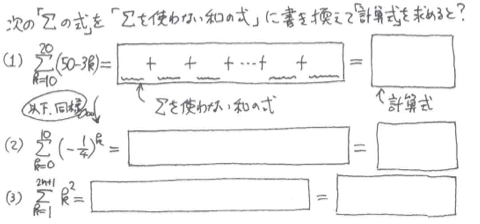 次の「Σの式」を「Σを使わない和の式」に書き換えて「計算式」を求めると?
(1) 20 Σ k=10 (50-3k) = + + + ... + + =
以下、同様 Σを使わない和の式 計算式
(2) 10 Σ k=0 (-1/4)^k = =
(3) 2n+1 Σ k=1 k^2 = =